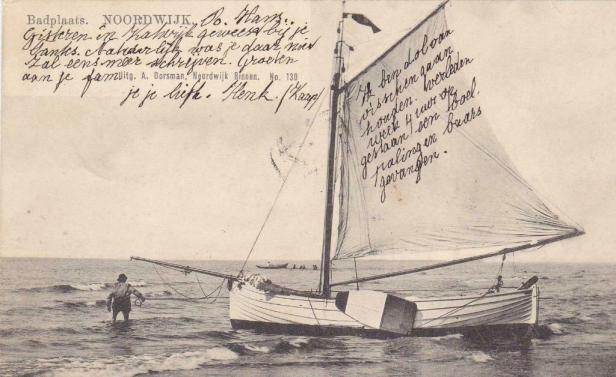 Badplaats. NOORDWIJK.
B. Hans..
Gisteren in Katwijk geweest bij je
tantes. Natuurlijk was je daar niet
Zal eens meer schrijven. Groeten
aan je fam.
Uitg. A. Dorsman, Noordwijk Binnen. No. 130
je je liefh. Henk.
Ik ben dol van
visschen gaan
houden. Verleden
week 4 uur op
gestaan een
paling en baars
gevangen.